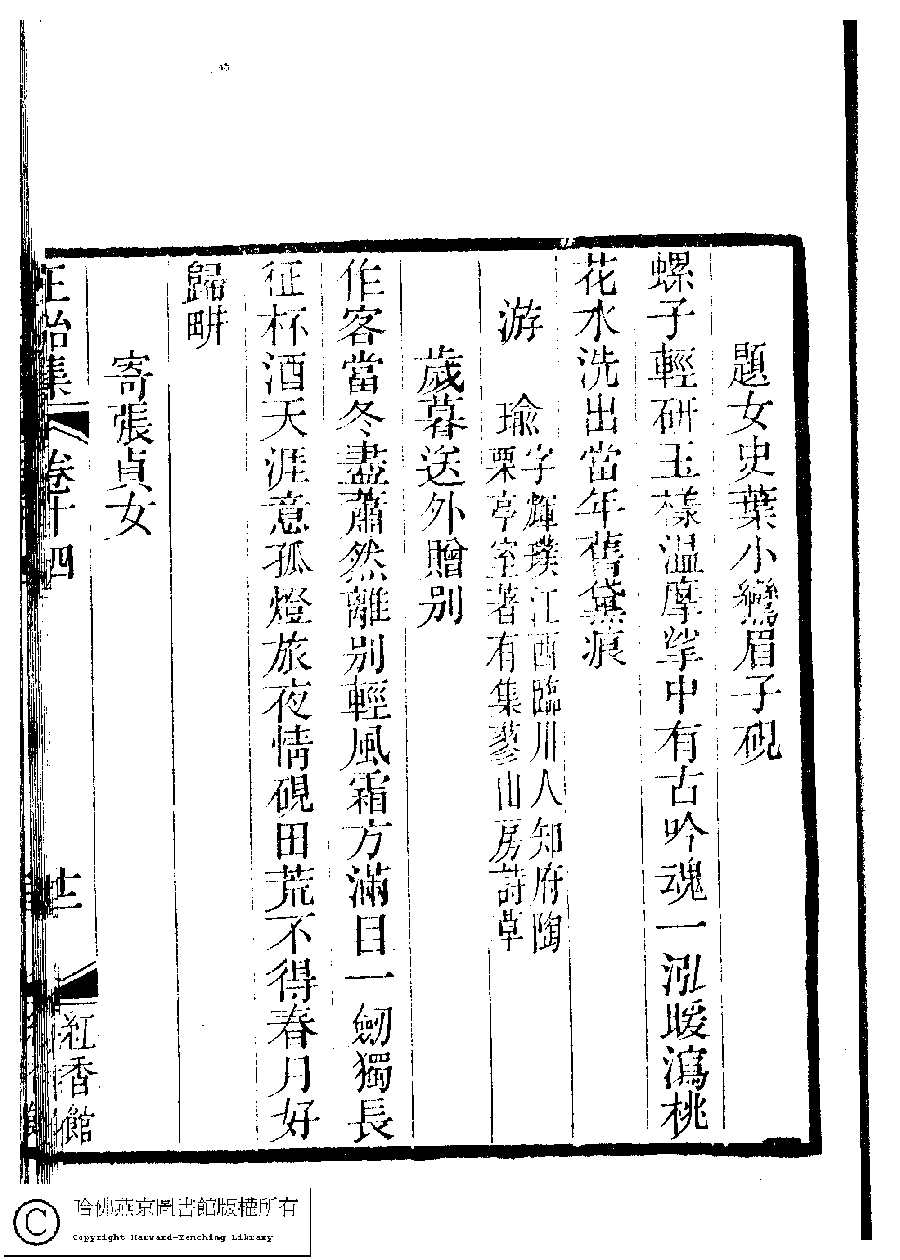 題女史葉小鸞眉子硯
螺子輕研玉樣温摩挲中有古吟魂一泓暖瀉桃
花水洗出當年舊黛痕
游瑜字輝璞江西臨川人知府陶
栗亭室著有集蓼山房詩草
歲暮送外贈别
作客當冬盡蕭然離别輕風霜方滿目一劒獨長
征杯酒天涯意孤燈旅夜情硯田荒不得春月好
歸畊
寄張貞女
集 卷十四
紅香館
哈佛燕京圖書館版權所有
Copyright Harvard-Yenching Library